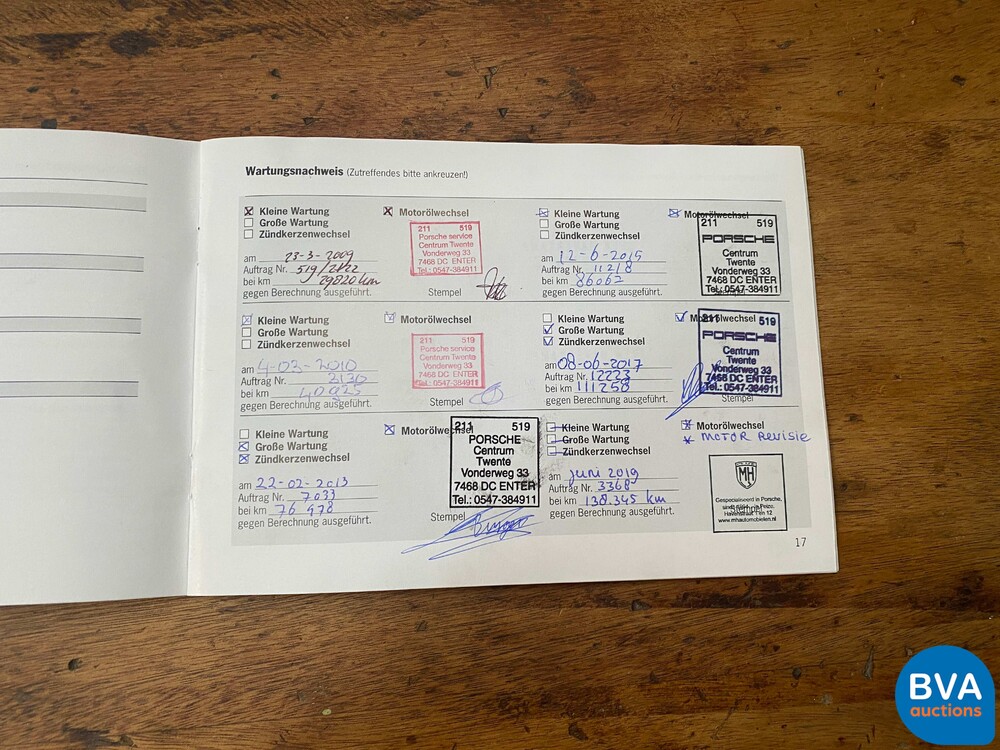 Wartungsnachweis (Zutreffendes bitte ankreuzen!)
Kleine Wartung
Große Wartung
Zündkerzenwechsel
Motorölwechsel
am 23-3-2009
Auftrag Nr. 519/2122
bei km 29820 km
gegen Berechnung ausgeführt.
211 519
Porsche service
Centrum Twente
Vonderweg 33
7468 DC ENTER
Tel.: 0547-384911
Stempel
Kleine Wartung
Große Wartung
Zündkerzenwechsel
Motorölwechsel
am 12-6-2015
Auftrag Nr. 11218
bei km 86067
gegen Berechnung ausgeführt.
211 519
PORSCHE
Centrum
Twente
Vonderweg 33
7468 DC ENTER
Tel.: 0547-384911
Kleine Wartung
Große Wartung
Zündkerzenwechsel
Motorölwechsel
am 4-03-2010
Auftrag Nr. 2130
bei km 40925
gegen Berechnung ausgeführt.
211 519
Porsche service
Centrum Twente
Vonderweg 33
7468 DC ENTER
Tel.: 0547-384911
Stempel
Kleine Wartung
Große Wartung
Zündkerzenwechsel
Motorölwechsel
am 08-06-2017
Auftrag Nr. 12223
bei km 111258
gegen Berechnung ausgeführt.
211 519
PORSCHE
Centrum
Twente
Vonderweg 33
7468 DC ENTER
Tel.: 0547-384911
Stempel
Kleine Wartung
Große Wartung
Zündkerzenwechsel
Motorölwechsel
am 22-02-2013
Auftrag Nr. 7033
bei km 76 478
gegen Berechnung ausgeführt.
211 519
PORSCHE
Centrum
Twente
Vonderweg 33
7468 DC ENTER
Tel.: 0547-384911
Stempel
Kleine Wartung
Große Wartung
Zündkerzenwechsel
Motorölwechsel
* MOTOR Revisie
am juni 2019
Auftrag Nr. 3368
bei km 138.345 km
gegen Berechnung ausgeführt.
MH
Gespecialiseerd in Porsche,
Stempel
www.mhautomobielen.nl
17
BVA
auctions